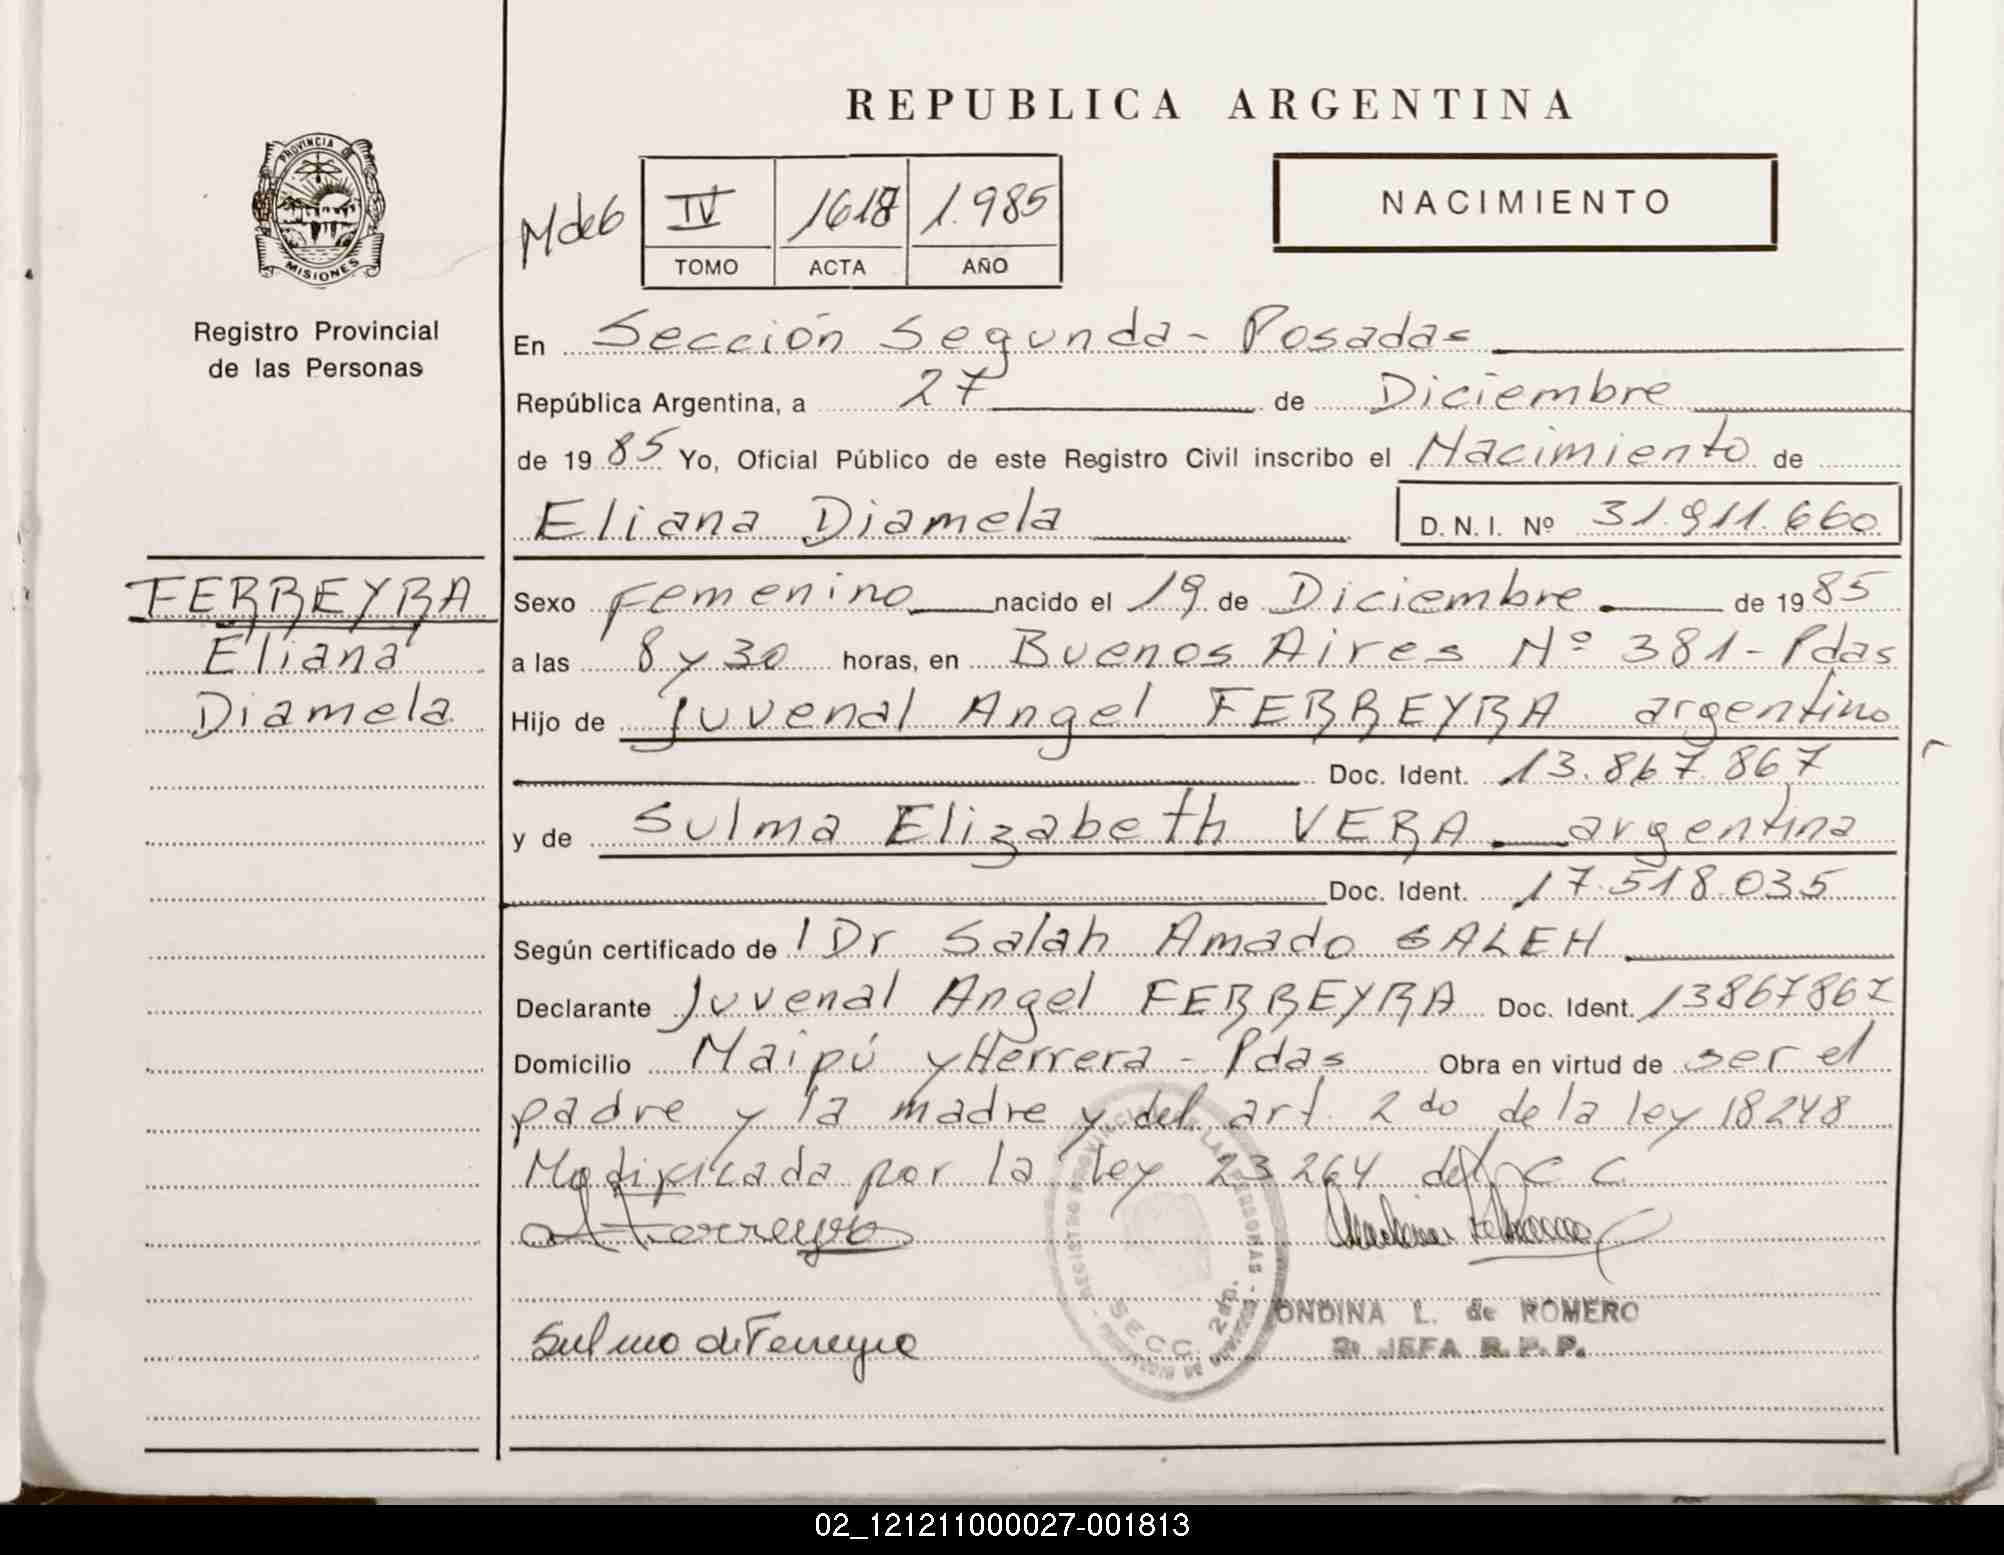 REPUBLICA ARGENTINA
PROVINCIA DE
MISIONES
Registro Provincial
de las Personas
Mdeb
IV 1618 1.985
TOMO ACTA AÑO
NACIMIENTO
En Sección Segunda - Posadas
República Argentina, a 27 de Diciembre
de 19 85 Yo, Oficial Público de este Registro Civil inscribo el Nacimiento de
Eliana Diamela D.N.I. Nº 31.911.660
FERREYRA
Eliana
Diamela
Sexo Femenino nacido el 19 de Diciembre de 19 85
a las 8 y 30 horas, en Buenos Aires Nº 381 - Pdas
Hijo de Juvenal Angel FERREYRA argentino
Doc. Ident. 13.867.867
y de Sulma Elizabeth VERA argentina
Doc. Ident. 17.518.035
Según certificado de l Dr Salah Amado SALEH
Declarante Juvenal Angel FERREYRA Doc. Ident. 13867867
Domicilio Maipú y Herrera - Pdas Obra en virtud de ser el
padre y la madre y del art. 2do de la ley 18248
Modificada por la ley 23264 del C C
Ferreyra
Sulma de Ferreyra
REGISTRO PROVINCIAL DE LAS PERSONAS
SECC. 2da.
ONDINA L. de ROMERO
JEFA R.P.P.
02_121211000027-001813